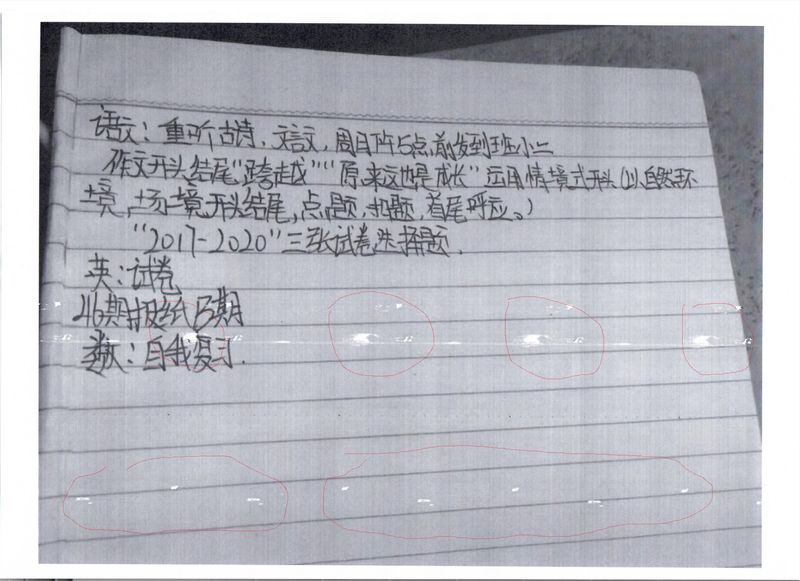 语文：重听古诗、文言文，周日下午5点前发到班小二
作文开头结尾"跨越""原来这也是成长"运用情境式开头(以自然环
境，场境开头结尾，点题，扣题，首尾呼应。)
"2017-2020"三张试卷选择题.
英：试卷
46期报纸 B期
数：自我复习.